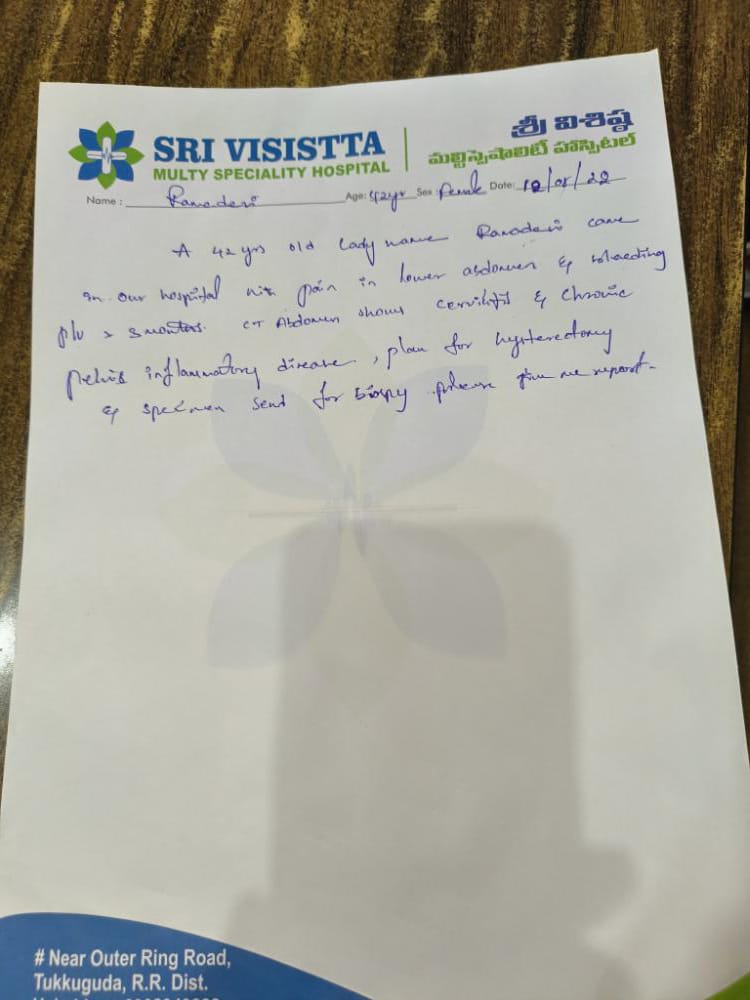 SRI VISISTTA
MULTY SPECIALITY HOSPITAL
శ్రీ విశిష్ఠ
మల్టిస్పెషాలిటీ హాస్పిటల్
Name : Ramadevi Age: 42yr Sex: Female Date: /22
A 42 yrs old lady name Ramadevi came
in our hospital with pain in lower abdomen & bleeding
p/v x 3 months. CT Abdomen shows cervicitis & chronic
pelvis inflammatory disease, plan for hysterectomy
& specimen send for biopsy please give me report.
# Near Outer Ring Road,
Tukkuguda, R.R. Dist.